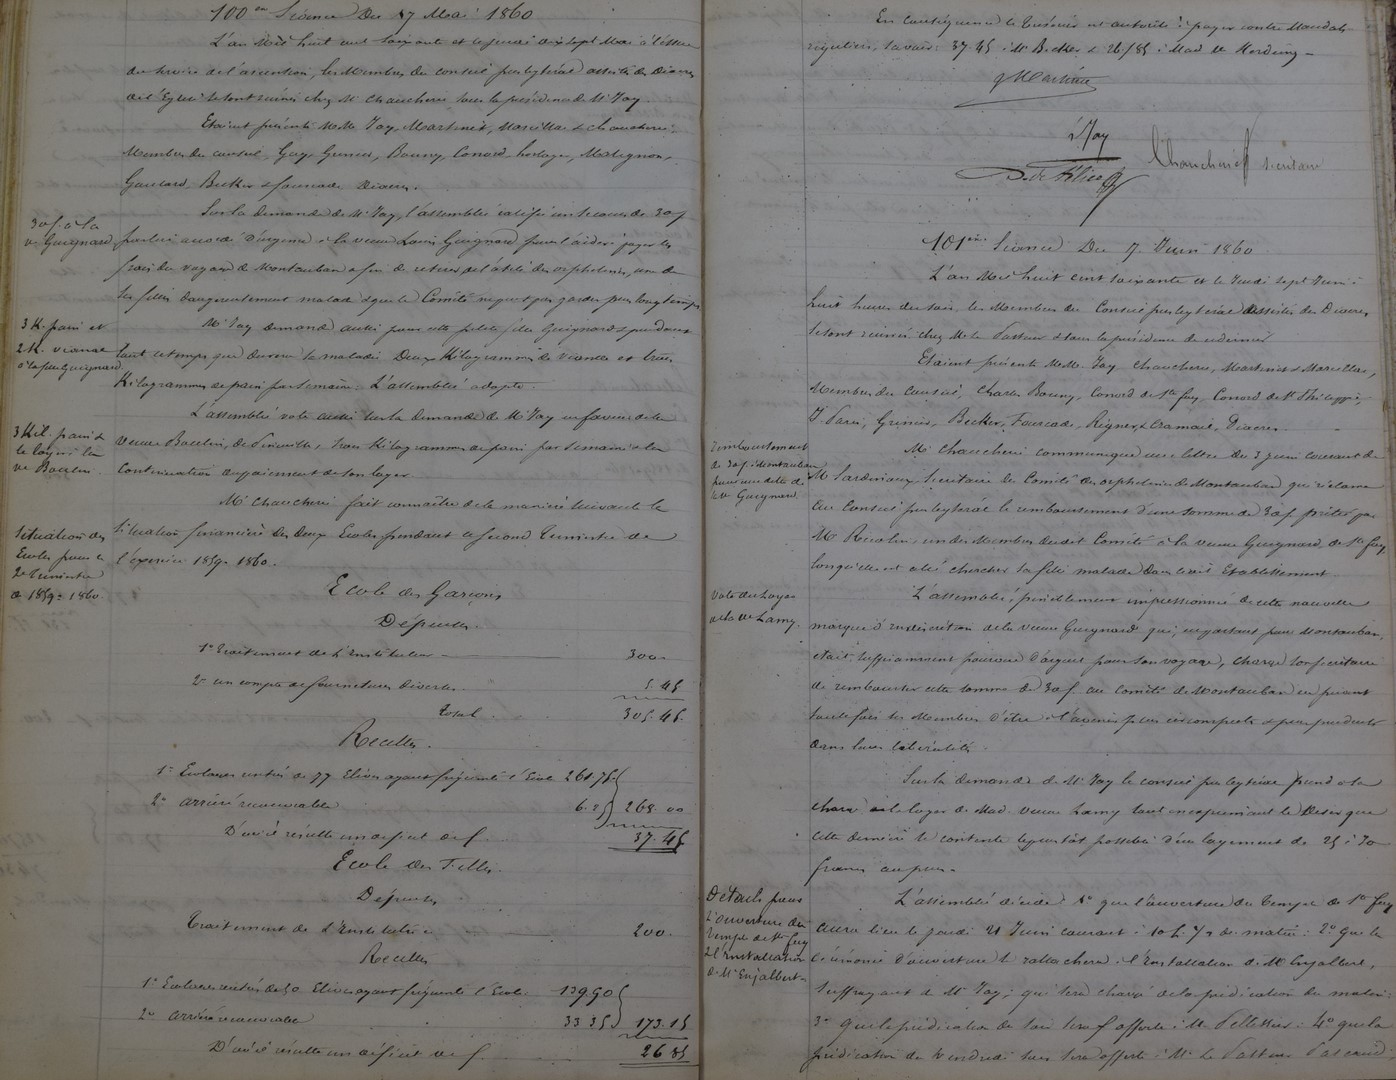 100ème Séance Du 17 Mai 1860
L'an Mil huit cent soixante et le jeudi dix sept Mai à l'issue
du service de l'ascension, les Membres du conseil presbytéral assistés des Diacres
de l'Eglise se sont réunis chez Mr Chaucherie sous la présidence de Mr Jay.
Etaient présents M.M. Jay, Martinet, Marcillac & Chaucherie
Membres du conseil, Guy, Grenier, Bonny, Conord, Matignon,
Becker & Fourcade Diacres.
30f. à la
ve Guignard
Sur la demande de Mr Jay, l'assemblée ratifie un secours de 30f
par lui accordé d'urgence à la veuve Louis Guignard pour l'aider à payer les
frais du voyage de Montauban afin de retirer de l'asile des orphelines, une de
ses filles dangereusement malade & que le Comité ne peut pas garder plus longtemps.
3 K. pain et
2 K. viande
à la ve Guignard.
Mr Jay demande aussi pour cette petite fille Guignard & pendant
tout le temps que durera la maladie Deux Kilogrammes de Viande et trois
Kilogrammes de pain par semaine. L'assemblée adopte.
3 Kil. pain &
le loyer à la
ve
L'assemblée vote aussi sur la demande de Mr Jay en faveur de la
veuve trois Kilogrammes de pain par semaine & la
Continuation du paiement de son loyer.
Situation des
Ecoles pour le
2e Trimestre
de 1859-1860.
Mr Chaucherie fait connaître de la manière suivante la
situation financière des deux Ecoles pendant le second Trimestre de
l'exercice 1859-1860.
Ecole des Garçons
Dépenses.
1° Traitement de l'Instituteur 300.
2° un compte de fournitures diverses. 5.45
Total 305.45.
Recettes.
1° Ecolages rentrés de 77 Elèves ayant fréquenté l'Ecole 261.75
2° arriéré recouvrable 6.25 268.00
D'où il résulte un déficit de f. 37.45
Ecole des Filles.
Dépenses
Traitement de l'Institutrice 200.
Recettes
1° Ecolages rentrés de 50 Elèves ayant fréquenté l'Ecole 139.90
2° arriéré recouvrable 33 35 173.15
D'où il résulte un déficit de f. 26 85
En conséquence le Trésorier est autorisé à payer contre Mandats
réguliers, savoir: 37.45 à Mr Becker & 26/85 à Mad.
Martinet
Jay
Chaucherie secrétaire
101ème Séance Du 7 Juin 1860
L'an Mil huit cent soixante et le Jeudi sept Juin à
huit heures du soir, les Membres du Conseil presbytéral assistés des Diacres
se sont réunis chez Mr le Pasteur & sous la présidence de ce dernier
Etaient présents M.M. Jay, Chaucherie, Martinet & Marcillac,
Membres du conseil, Charles Bonny, Conord de Ste Foy, Conord de St Philippe,
Grenier, Becker, Fourcade, Diacres
remboursement
de 30f. à Montauban
pour une dette de
la ve Guignard
Mr Chaucherie communique une lettre du 3 juin courant de
Mr Sardinoux, Secrétaire du Comité des orphelines de Montauban qui réclame
au Conseil presbytéral le remboursement d'une somme de 30f prêtée par
Mr un des Membres dudit Comité à la veuve Guignard, de Ste Foy,
lorsqu'elle est allée chercher sa fille malade dans le dit Etablissement.
L'assemblée, péniblement impressionnée de cette nouvelle
marque d'indiscrétion de la veuve Guignard qui, en partant pour Montauban,
était suffisamment pourvue d'argent pour son voyage, charge son secrétaire
de rembourser cette somme de 30f au Comité de Montauban en priant
toutefois ses Membres d'être à l'avenir plus circonspects & plus prudents
dans leurs libéralités.
Vote du loyer
de la ve Lamy.
Sur la demande de Mr Jay le conseil presbytéral prend à sa
charge le loyer de Mad. veuve Lamy tout en exprimant le désir que
cette dernière se contente le plus tôt possible d'un logement de 25 à 30
francs au plus.
Détails pour
l'ouverture du
Temple de Ste Foy
& l'Installation
de Mr Enjalbert
L'assemblée décide 1° que l'ouverture du Temple de Ste Foy
aura lieu le jeudi 21 Juin courant à 10 h. 1/2 du matin: 2° que la
cérémonie d'ouverture se rattachera à l'Installation de Mr Enjalbert,
suffragant de Mr Jay, qui sera chargé de la prédication du matin:
3° que la prédication du soir sera offerte à Mr Pellissier: 4° que la
prédication du Vendredi soir sera offerte à Mr le Pasteur